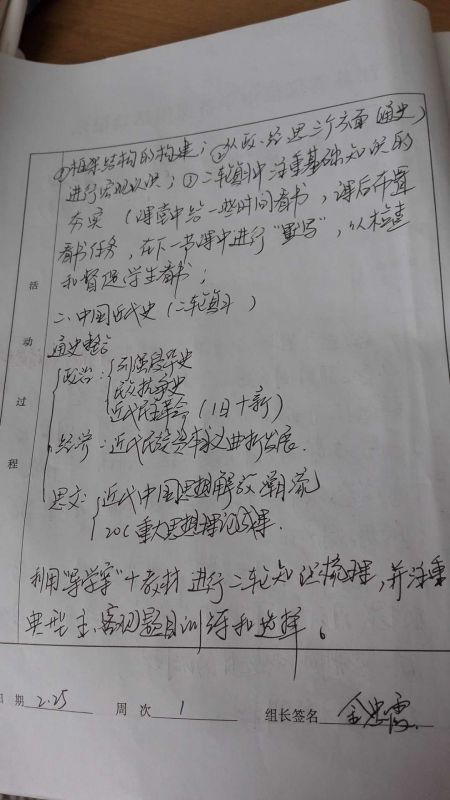 ①框架结构的构建；②从政、经、思三个方面(通史)
进行宏观认识；③二轮复习中注重基础知识的
夯实（课堂中给一些时间看书，课后布置
看书任务，在下一节课中进行“默写”，以检查
和督促学生看书；
二、中国近代史（二轮复习）
通史整合
政治：列强侵华史
民族抗争史
近代民主革命（旧十新）
经济：近代民族资本主义曲折发展.
思文：近代中国思想解放潮流
20C重大思想理论成果.
利用“导学案”十教材进行二轮知识梳理，并注重
典型主、客观题目训练和选择。
活动过程
日期 2.25 周次 1 组长签名